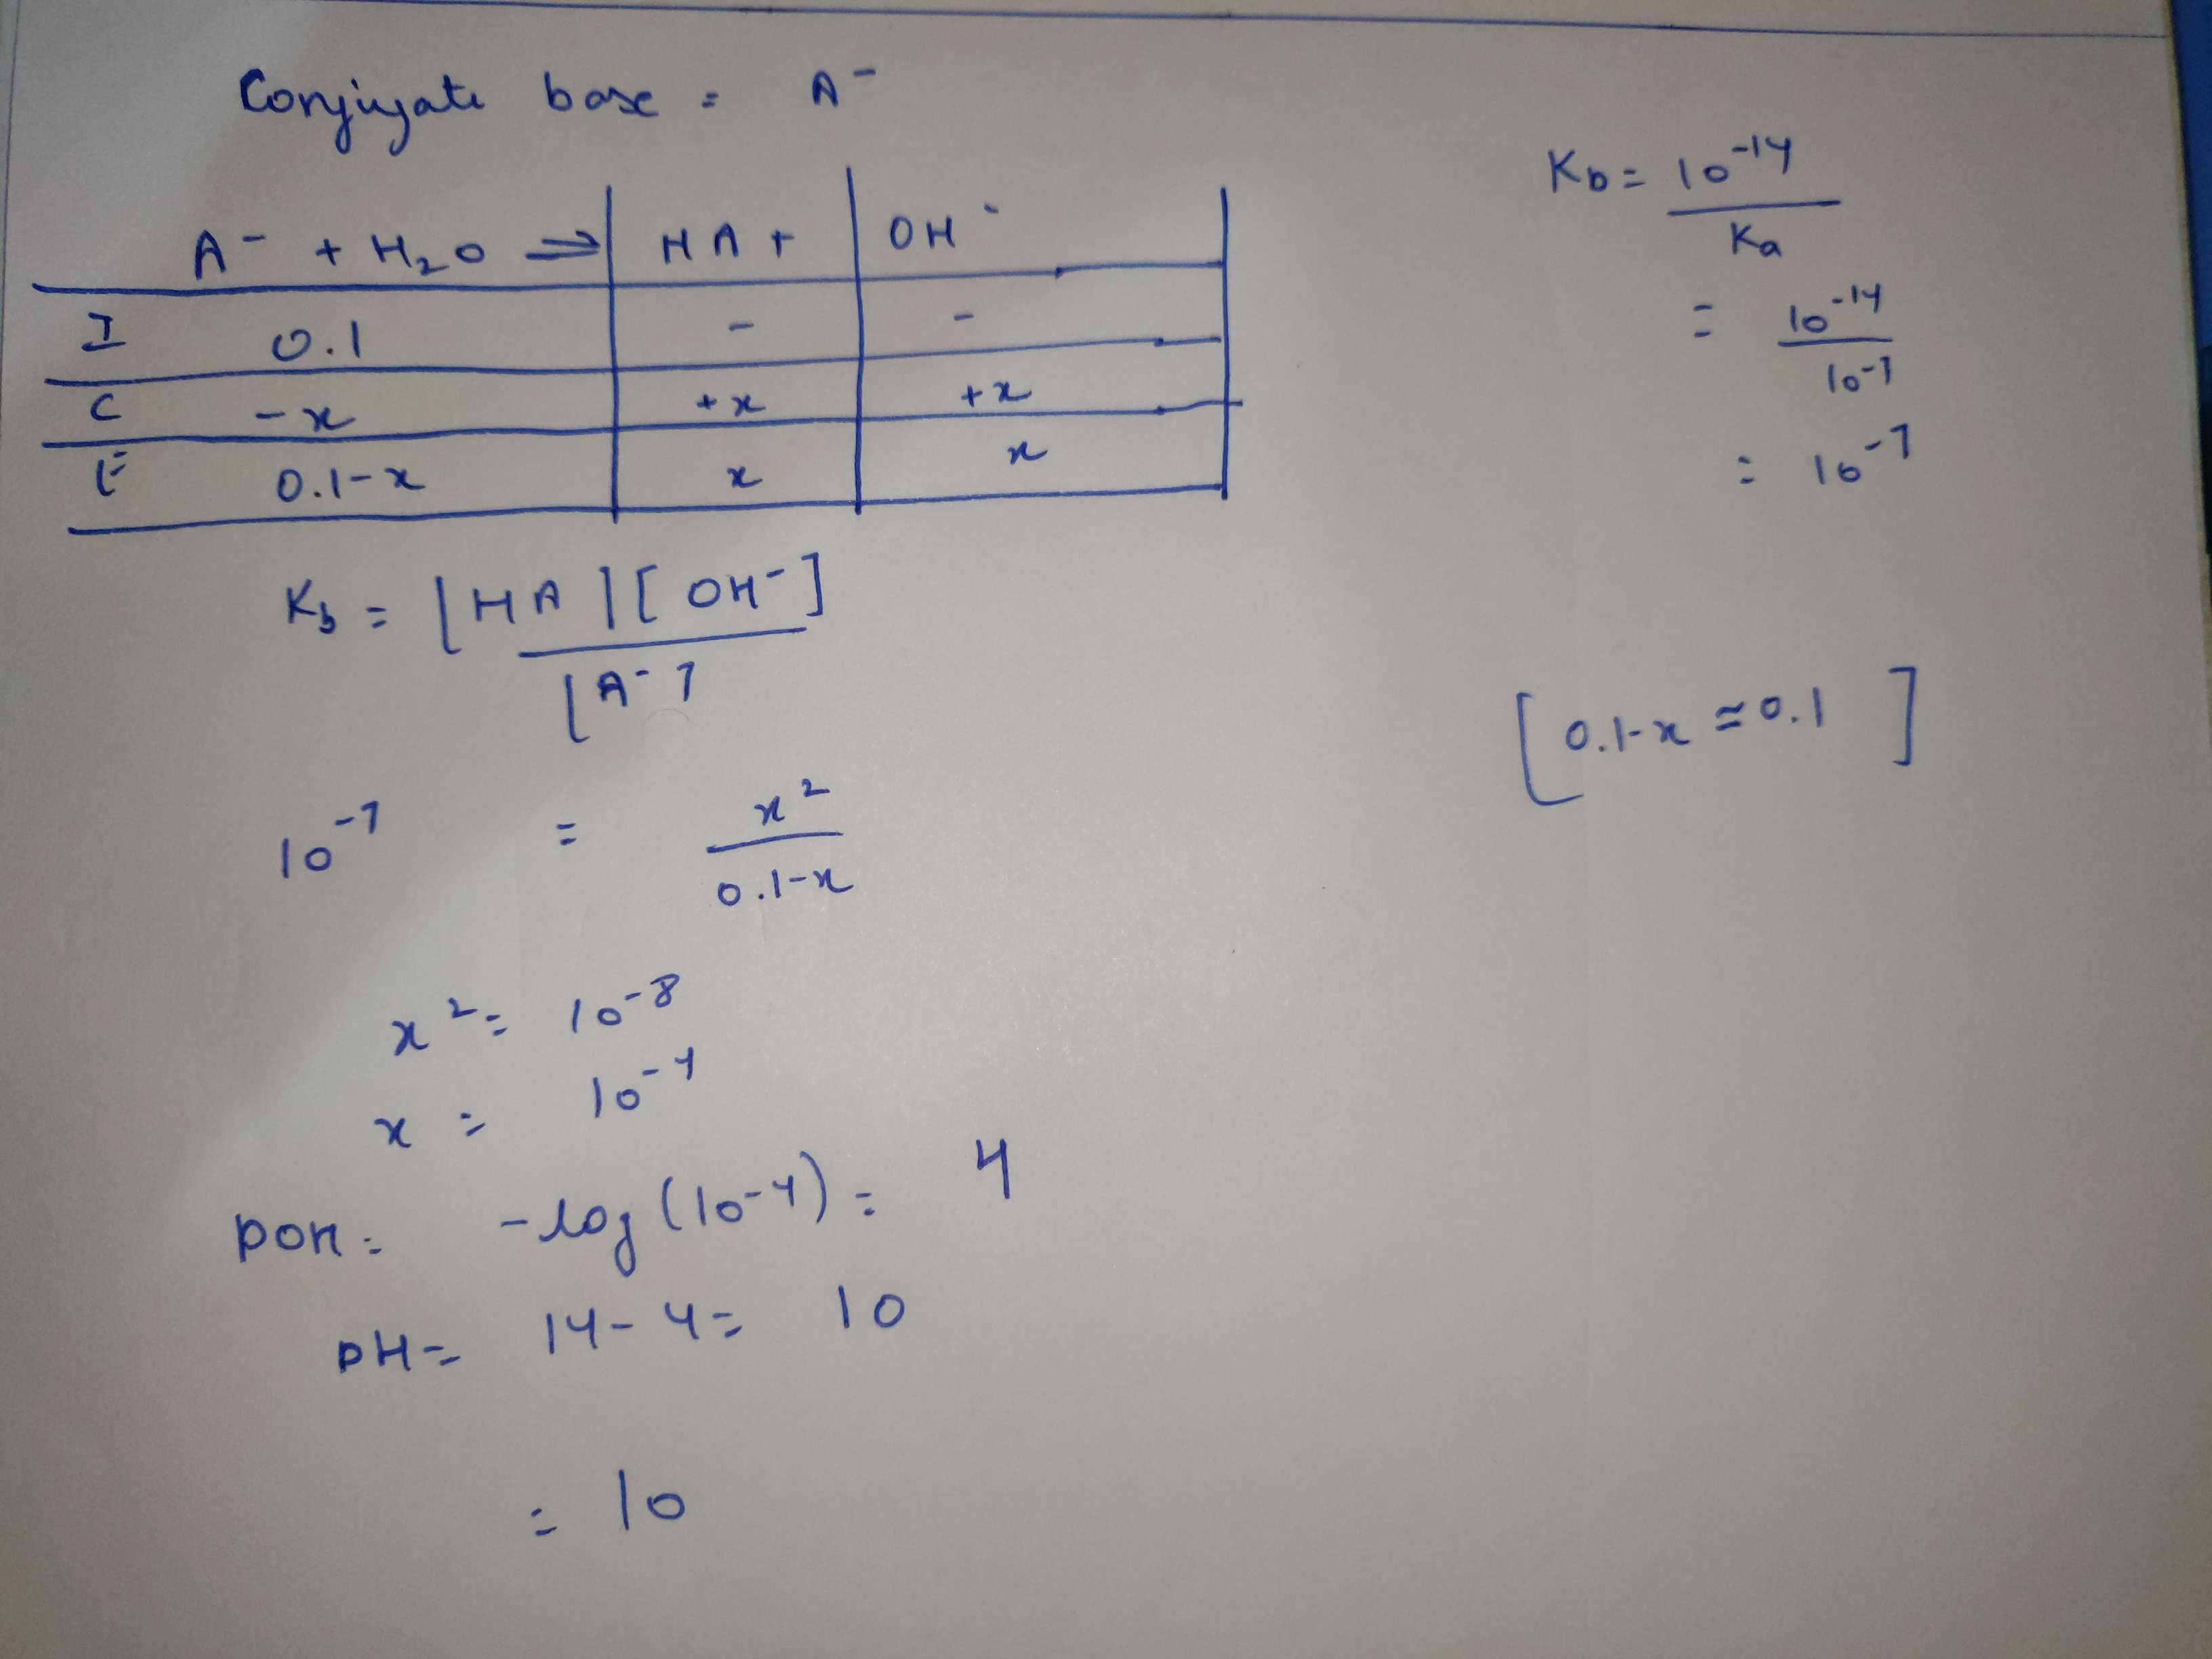 Conjugate base = A⁻
A⁻ + H₂O ⇌ HA + OH⁻
I 0.1 - -
C -x +x +x
E 0.1-x x x
Kb = 10⁻¹⁴ / Ka
= 10⁻¹⁴ / 10⁻⁷
= 10⁻⁷
Kb = [HA][OH⁻] / [A⁻]
[0.1-x ≈ 0.1]
10⁻⁷ = x² / 0.1-x
x² = 10⁻⁸
x = 10⁻⁴
pOH = -log(10⁻⁴) = 4
pH = 14-4 = 10
= 10